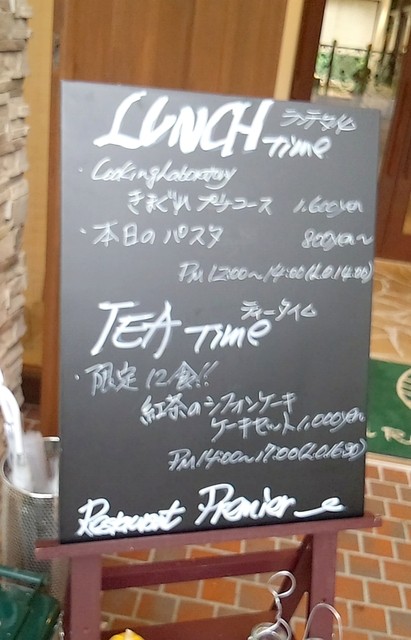 LUNCH Time ランチタイム
・Cooking Laboratory
きまぐれプチコース 1.600yen
・本日のパスタ 800yen〜
PM 12:00〜14:00(L.O.14:00)
TEA Time ティータイム
・限定12食!!
紅茶のシフォンケーキ
ケーキセット 1.000yen
PM 14:00〜17:00(L.O.16:30)
Restaurant Premier